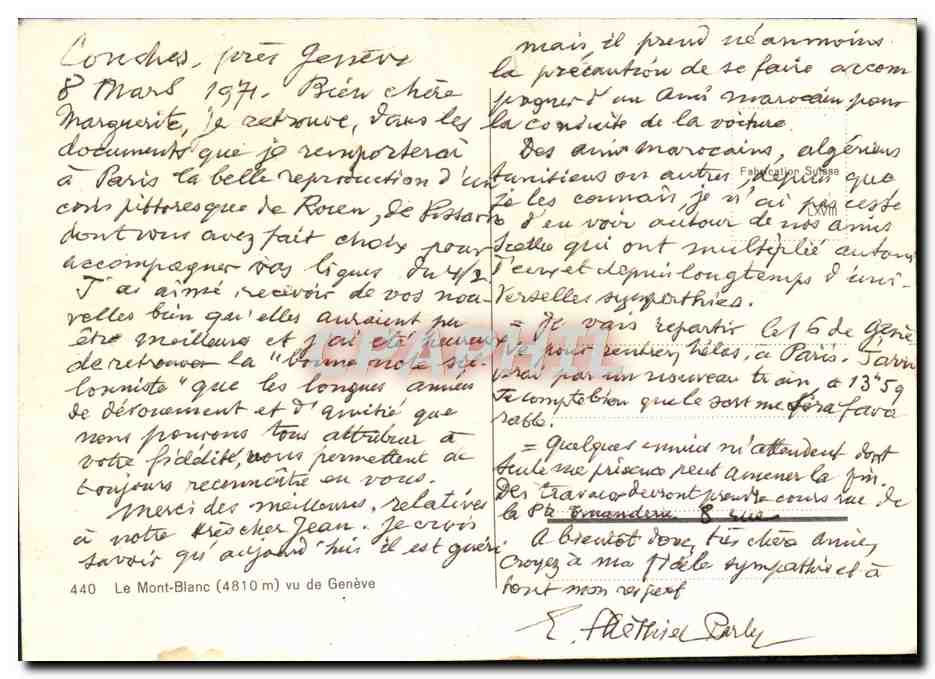 Conches, près Genève
8 Mars 1971. Bien chère
Marguerite, je retrouve, dans les
documents que je remporterai
à Paris la belle reproduction d'un
coin pittoresque de Rouen, de Pissarro
dont vous avez fait choix pour
accompagner vos lignes du 4/2
J'ai aimé recevoir de vos nou-
velles bien qu'elles auraient pu
être meilleures et j'ai été heureux
de retrouver la "bonne note
lonniste" que les longues années
de dévouement et d'amitié que
nous pouvons tous attribuer à
votre fidélité, vous permettent de
toujours reconnaître en vous.
Merci des meilleures, relatives
à notre très cher Jean. Je crois
savoir qu'aujourd'hui il est guéri
440 Le Mont-Blanc (4810 m) vu de Genève
mais, il prend néanmoins
la précaution de se faire accom
pagner d'un ami marocain pour
la conduite de la voiture.
Des amis marocains, algériens
tunisiens ou autres, depuis que
je les connais, je n'ai pas cessé
d'en voir autour de nos amis
qui ont multiplié autour
d'eux et depuis longtemps d'uni-
verselles sympathies.
= Je vais repartir le 16 de Genè
ve pour rentrer, hélas, à Paris. J'arri
verai par un nouveau train, à 13h59
Je compte bien que le sort me sera favo
rable.
= Quelques ennuis m'attendent dont
seule ma présence peut amener la fin.
Des travaux devront prendre cours rue de
la
8 rue
A bientôt donc, très chère amie,
croyez à ma fidèle sympathie et à
tout mon respect
E.
Fabrication Suisse
LXVIII
CPAPHIL